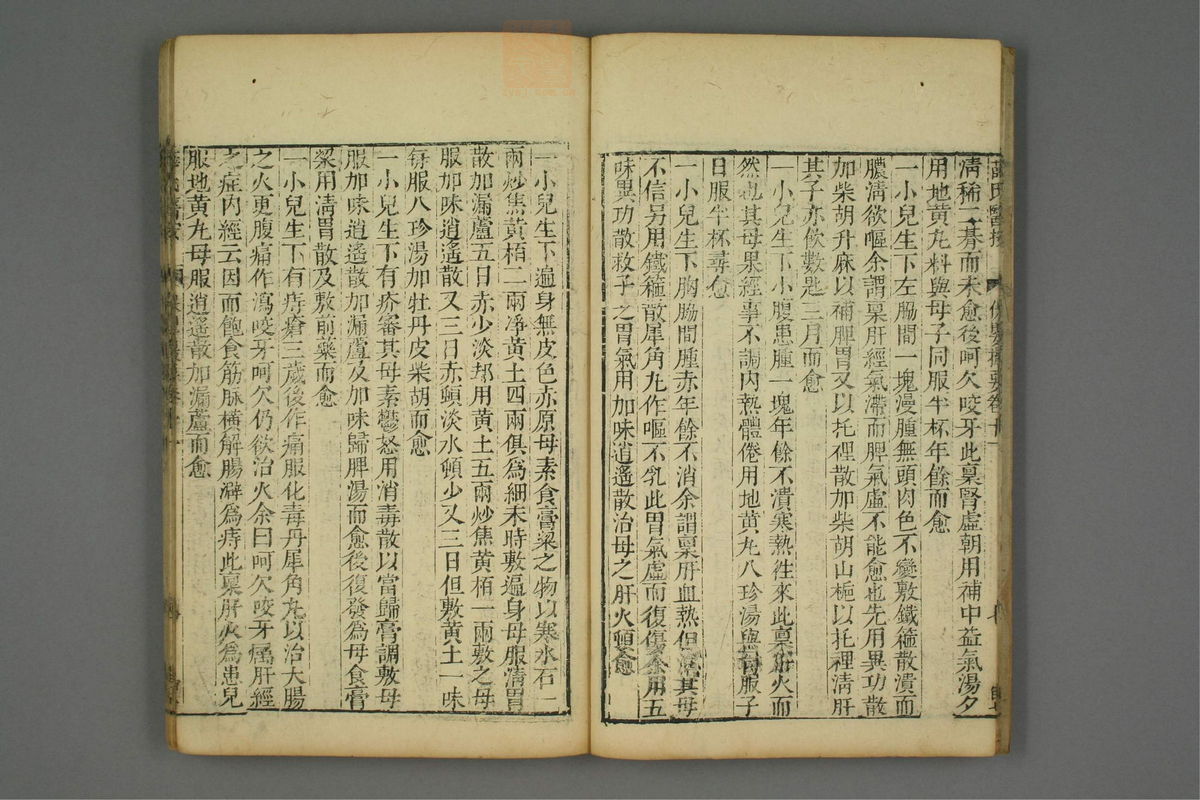 薛氏醫按 保嬰撮要卷
清稀一碁而未愈後呵欠咬牙此稟腎虛朝用補中益氣湯夕
用地黄丸料與母子同服半杯年餘而愈
一小兒生下左脇間一塊漫腫無頭肉色不變敷鐵箍散潰而
膿清欲嘔余謂稟肝經氣滯而脾氣虛不能愈也先用異功散
加柴胡升麻以補脾胃又以托裡散加柴胡山梔以托裡清肝
其子亦飲數匙三月而愈
一小兒生下小腹患腫一塊年餘不潰寒熱徃來此稟肝火而
然也其母果經事不調内熱體倦用地黄丸八珍湯與母服子
日服半杯尋愈
一小兒生下胸脇間腫赤年餘不消余謂稟肝血熱但其母
不信另用鐵箍散犀角丸作嘔不乳此胃氣虛而復傷余用五
味異功散救子之胃氣用加味逍遙散治母之肝火頓愈
一小兒生下遍身無皮色赤原母素食膏粱之物以寒水石二
兩炒焦黄栢二兩凈黄土四兩俱為細末時敷遍身母服清胃
散加漏蘆五日赤少淡却用黄土五兩炒焦黄栢一兩敷之母
服加味逍遙散又三日赤頓淡水頓少又三日但敷黄土一味
每服八珍湯加牡丹皮柴胡而愈
一小兒生下有疥審其母素鬱怒用消毒散以當歸膏調敷母
服加味逍遙散加漏蘆及加味歸脾湯而愈後復發為母食膏
粱用清胃散及敷前藥而愈
一小兒生下有痔瘡三歲後作痛服化毒丹犀角丸以治大腸
之火更腹痛作瀉咬牙呵欠仍欲治火余曰呵欠咬牙屬肝經
之症内經云因而飽食筋脉横解腸澼為痔此稟肝火為患兒
服地黄丸母服逍遙散加漏蘆而愈